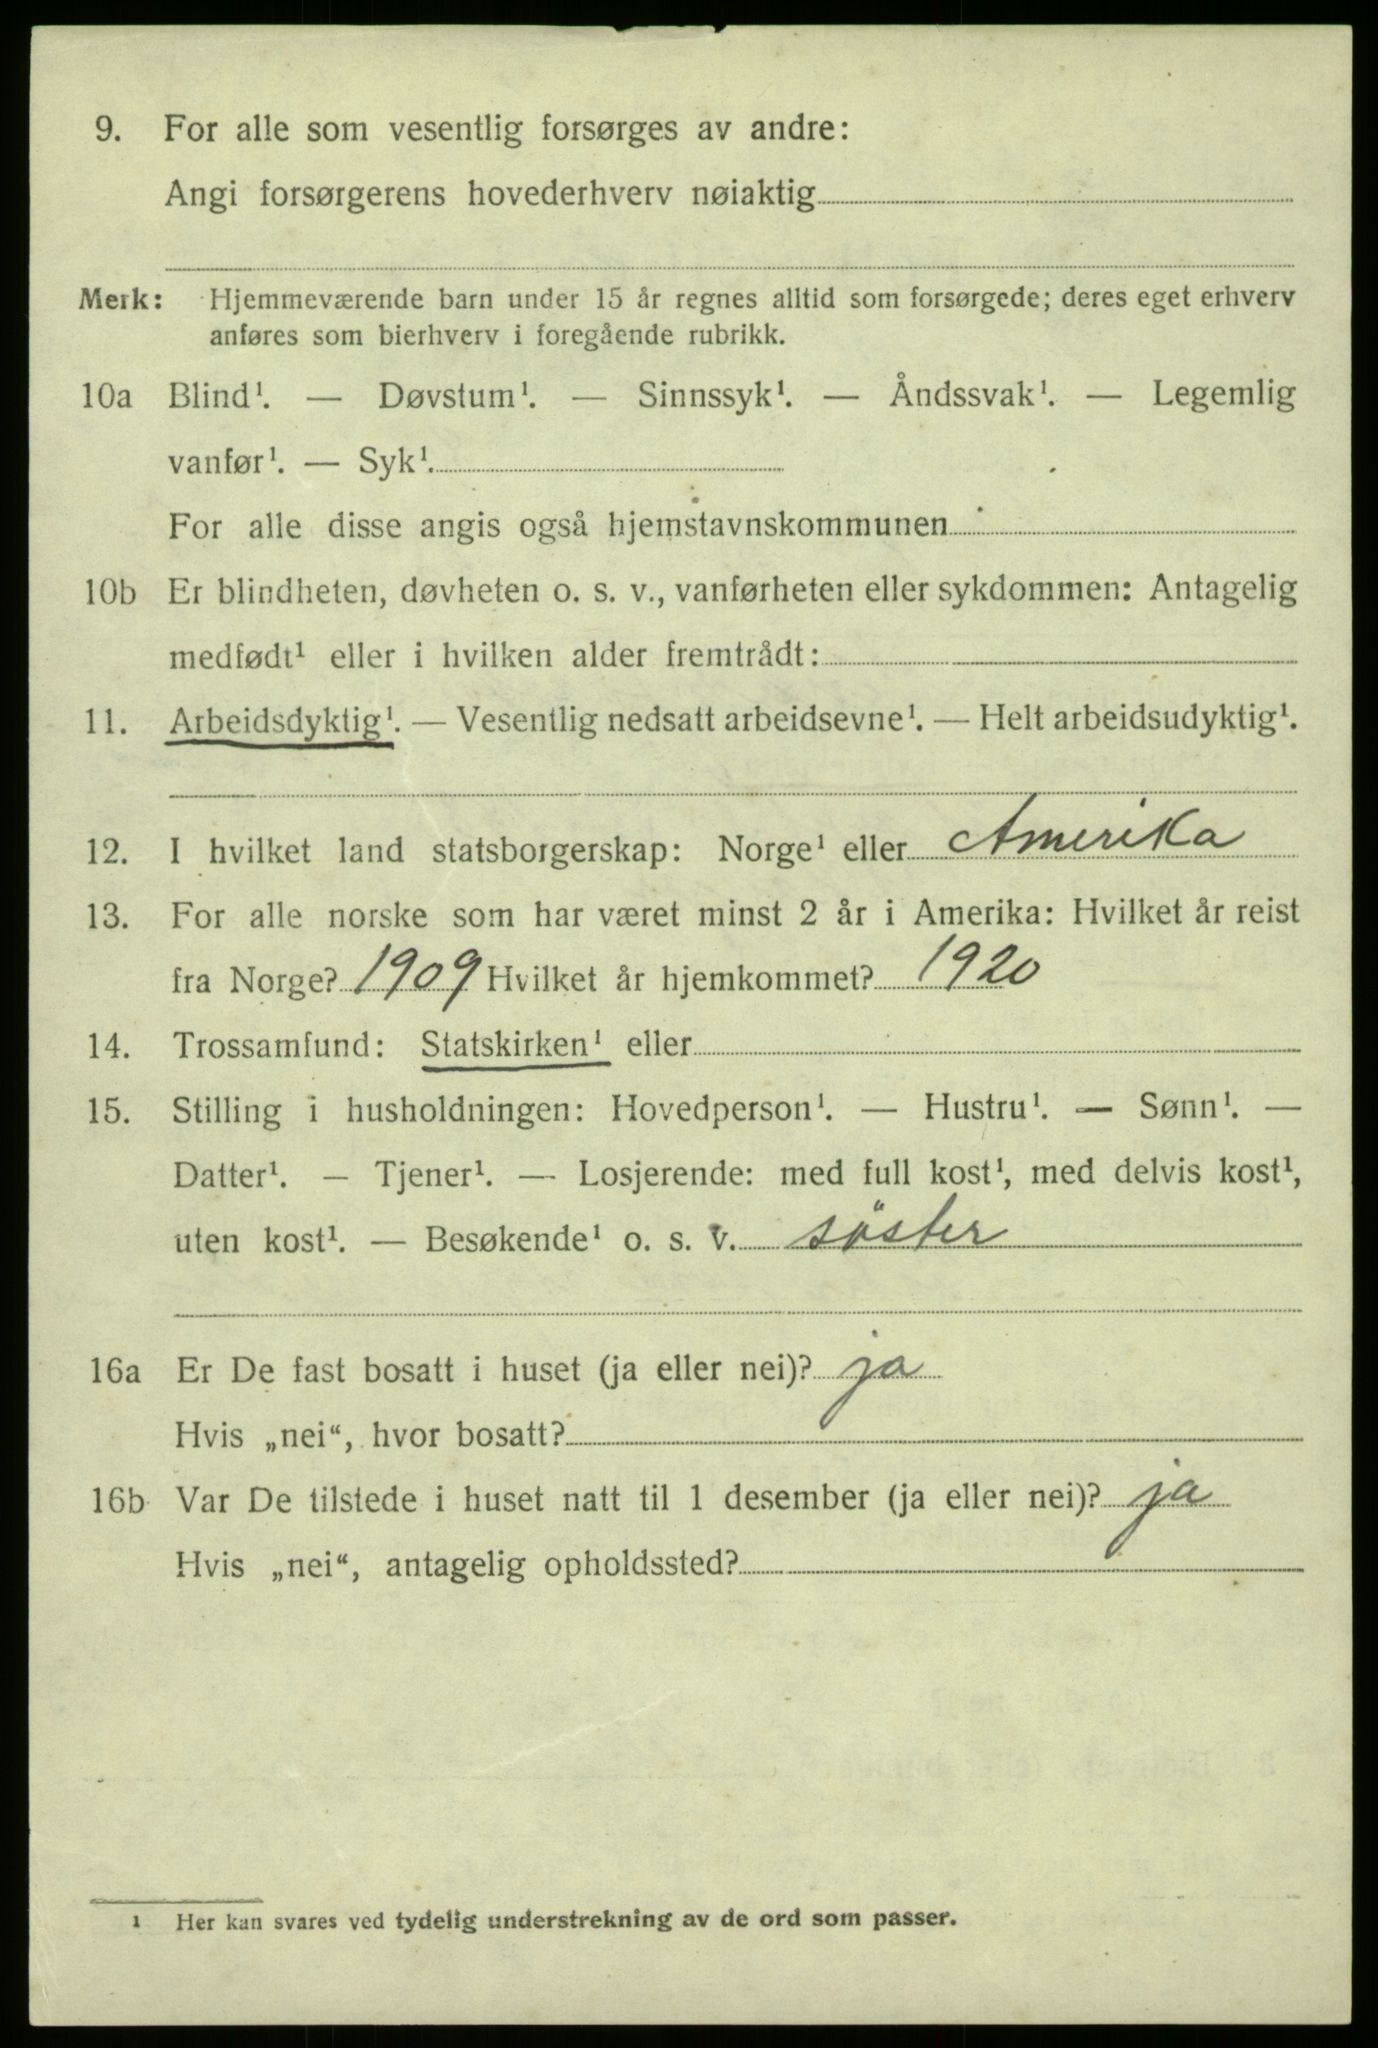 9. For alle som vesentlig forsørges av andre:
Angi forsørgerens hovederhverv nøiaktig
Merk: Hjemmeværende barn under 15 år regnes alltid som forsørgede; deres eget erhverv
anføres som bierhverv i foregående rubrikk.
10a Blind¹. — Døvstum¹. — Sinnssyk¹. — Åndssvak¹. — Legemlig
vanfør¹. — Syk¹.
For alle disse angis også hjemstavnskommunen
10b Er blindheten, døvheten o. s. v., vanførheten eller sykdommen: Antagelig
medfødt¹ eller i hvilken alder fremtrådt:
11. Arbeidsdyktig¹. — Vesentlig nedsatt arbeidsevne¹. — Helt arbeidsudyktig¹.
12. I hvilket land statsborgerskap: Norge¹ eller Amerika
13. For alle norske som har været minst 2 år i Amerika: Hvilket år reist
fra Norge? 1909 Hvilket år hjemkommet? 1920
14. Trossamfund: Statskirken¹ eller
15. Stilling i husholdningen: Hovedperson¹. — Hustru¹. — Sønn¹. —
Datter¹. — Tjener¹. — Losjerende: med full kost¹, med delvis kost¹,
uten kost¹. — Besøkende¹ o. s. v. söster
16a Er De fast bosatt i huset (ja eller nei)? ja
Hvis „nei“, hvor bosatt?
16b Var De tilstede i huset natt til 1 desember (ja eller nei)? ja
Hvis „nei“, antagelig opholdssted?
1 Her kan svares ved tydelig understrekning av de ord som passer.